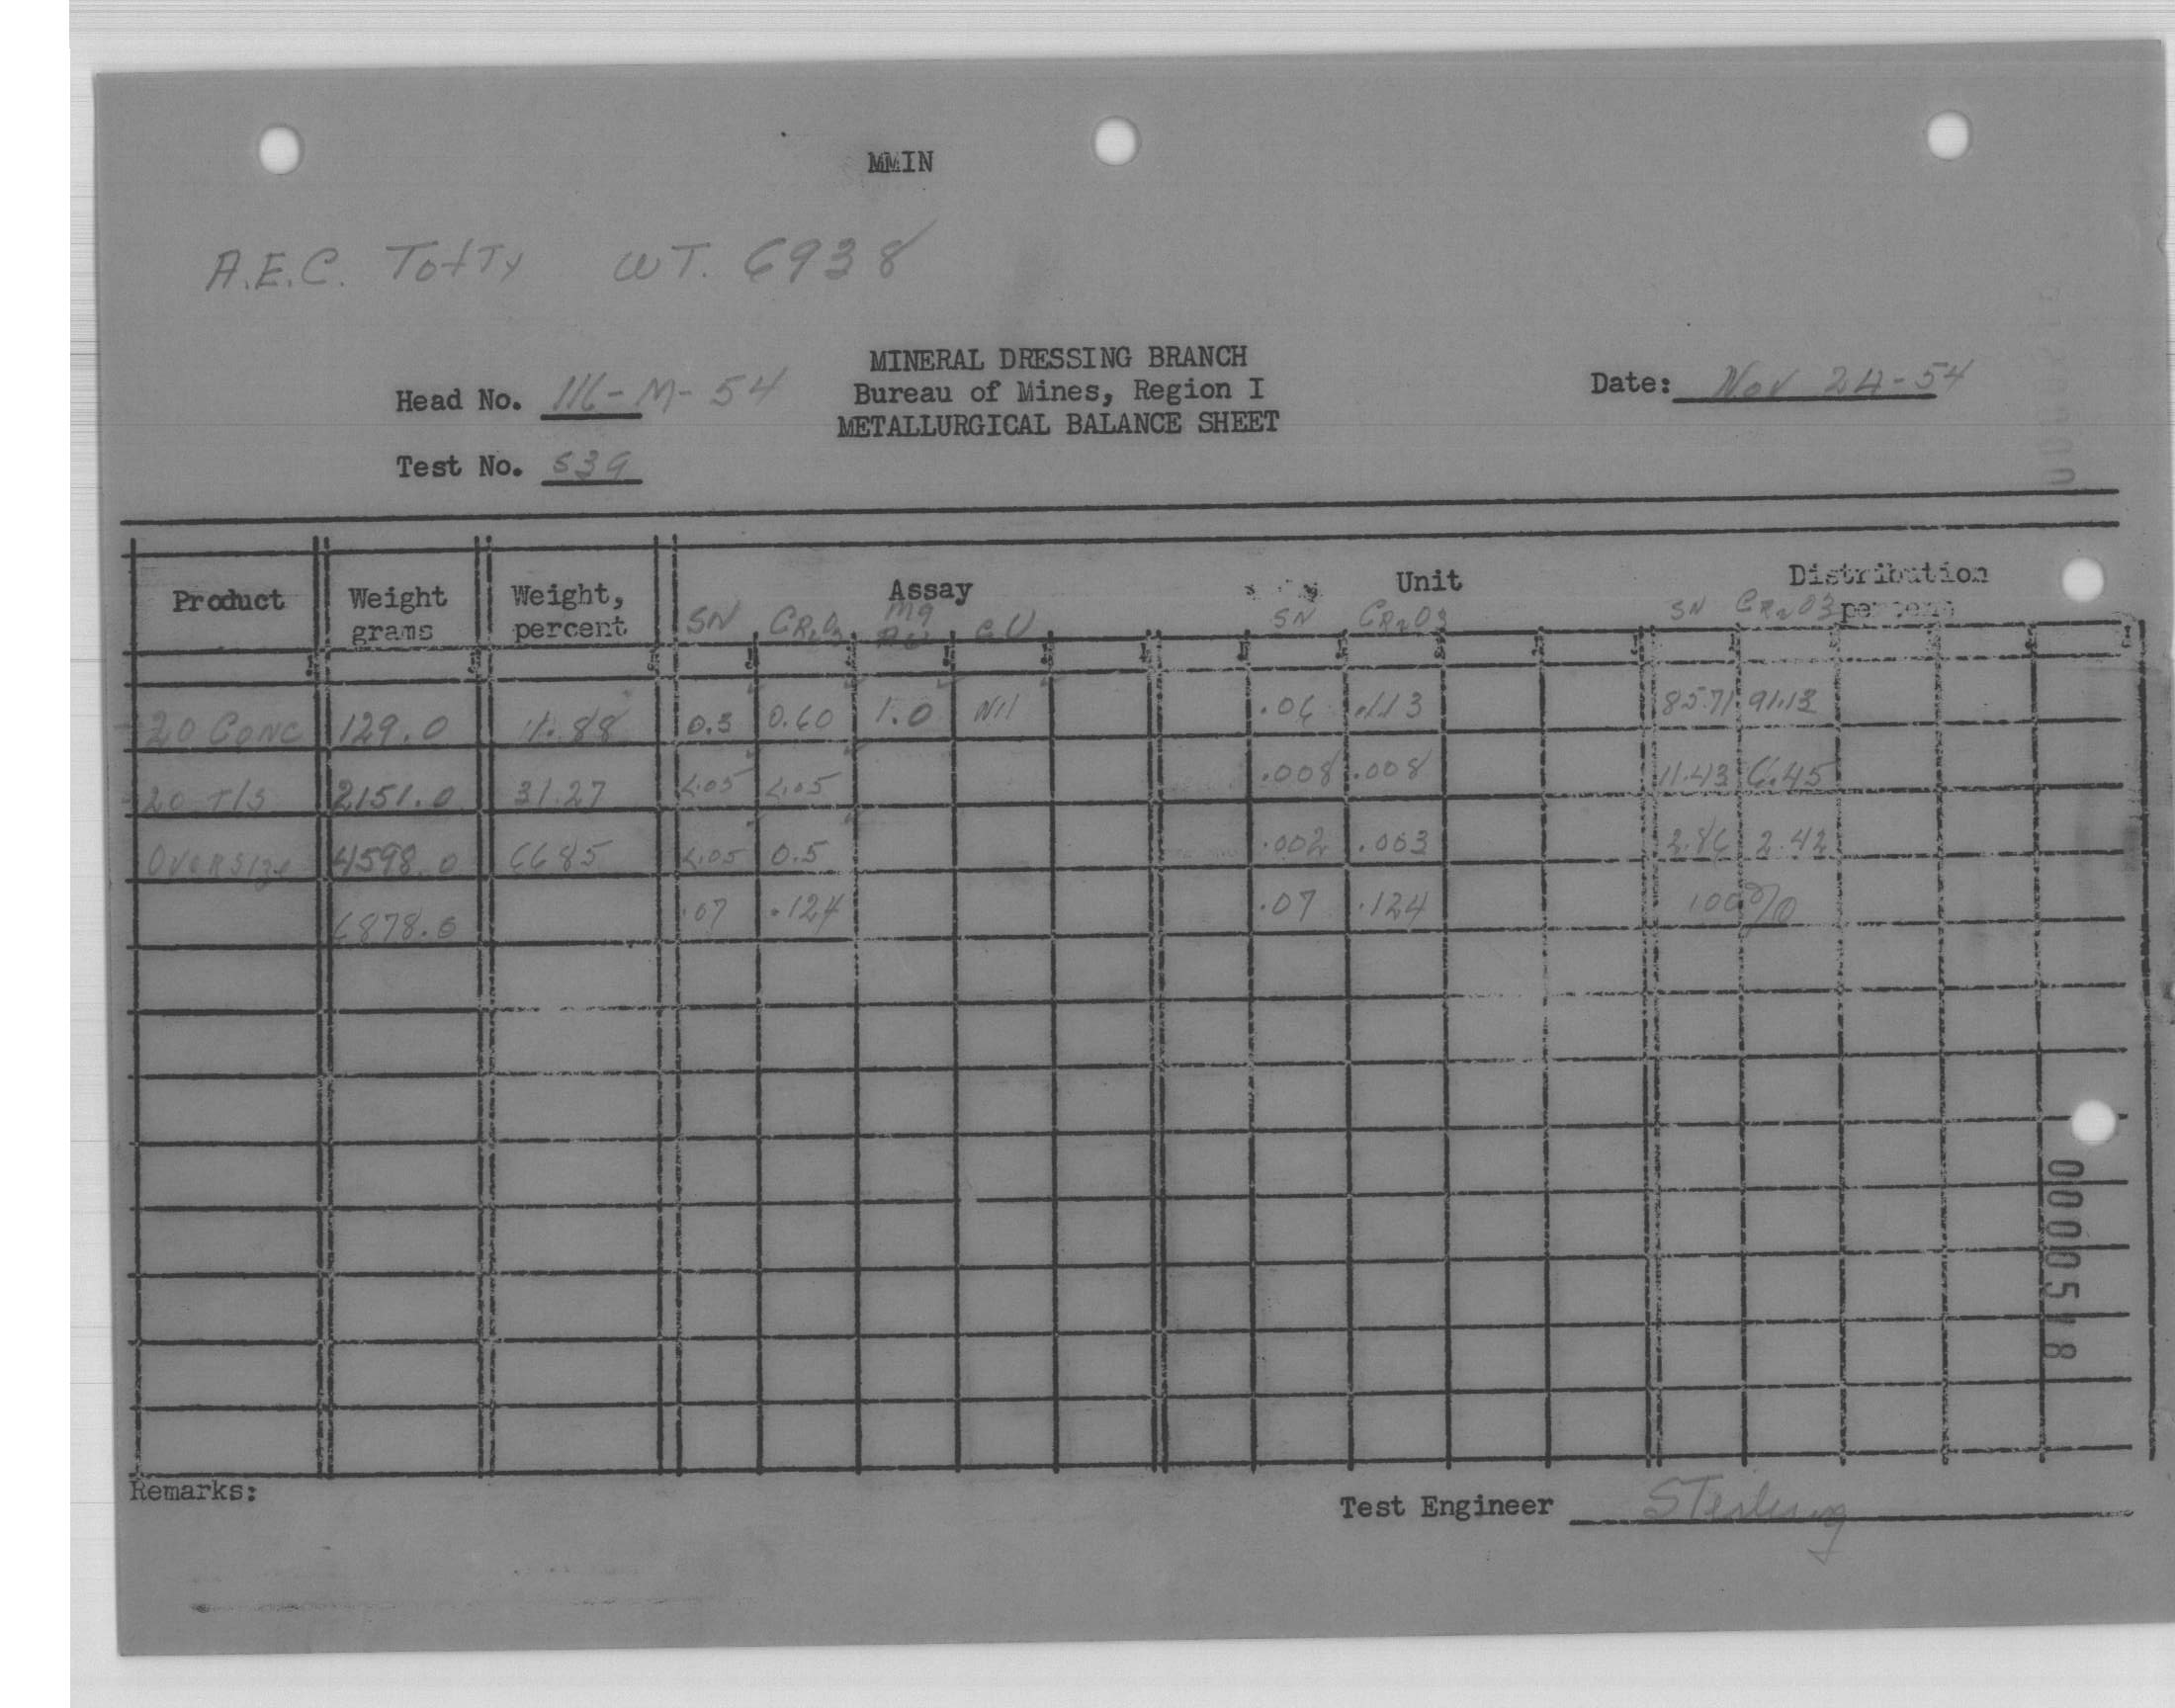 MMIN
A.E.C. Tofty WT. 6938
MINERAL DRESSING BRANCH
Head No. 116-M-54 Bureau of Mines, Region I Date: Nov 24-54
METALLURGICAL BALANCE SHEET
Test No. 539
Product Weight grams Weight, percent Assay Unit Distribution percent
SN CR2O3 Mg Au eU SN CR2O3 SN CR2O3
-20 Conc 129.0 1.88 0.3 0.60 1.0 Nil .06 .113 85.71 91.13
-20 T/s 2151.0 31.27 <.05 <.05 .008 .008 11.43 6.45
Oversize 4598.0 66.85 <.05 0.5 .002 .003 2.86 2.42
6878.0 .07 .124 .07 .124 100%
Remarks:
Test Engineer Sterling
0000518